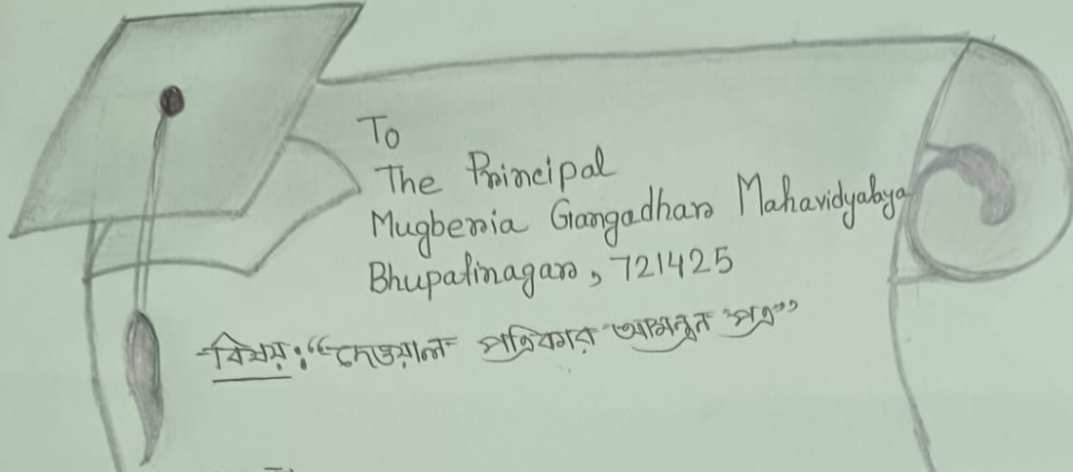 To
The Principal
Mugberia Gangadhar Mahavidyalaya
Bhupatinagar, 721425
বিষয়: "দেওয়াল পত্রিকার আমন্ত্রন পত্র"